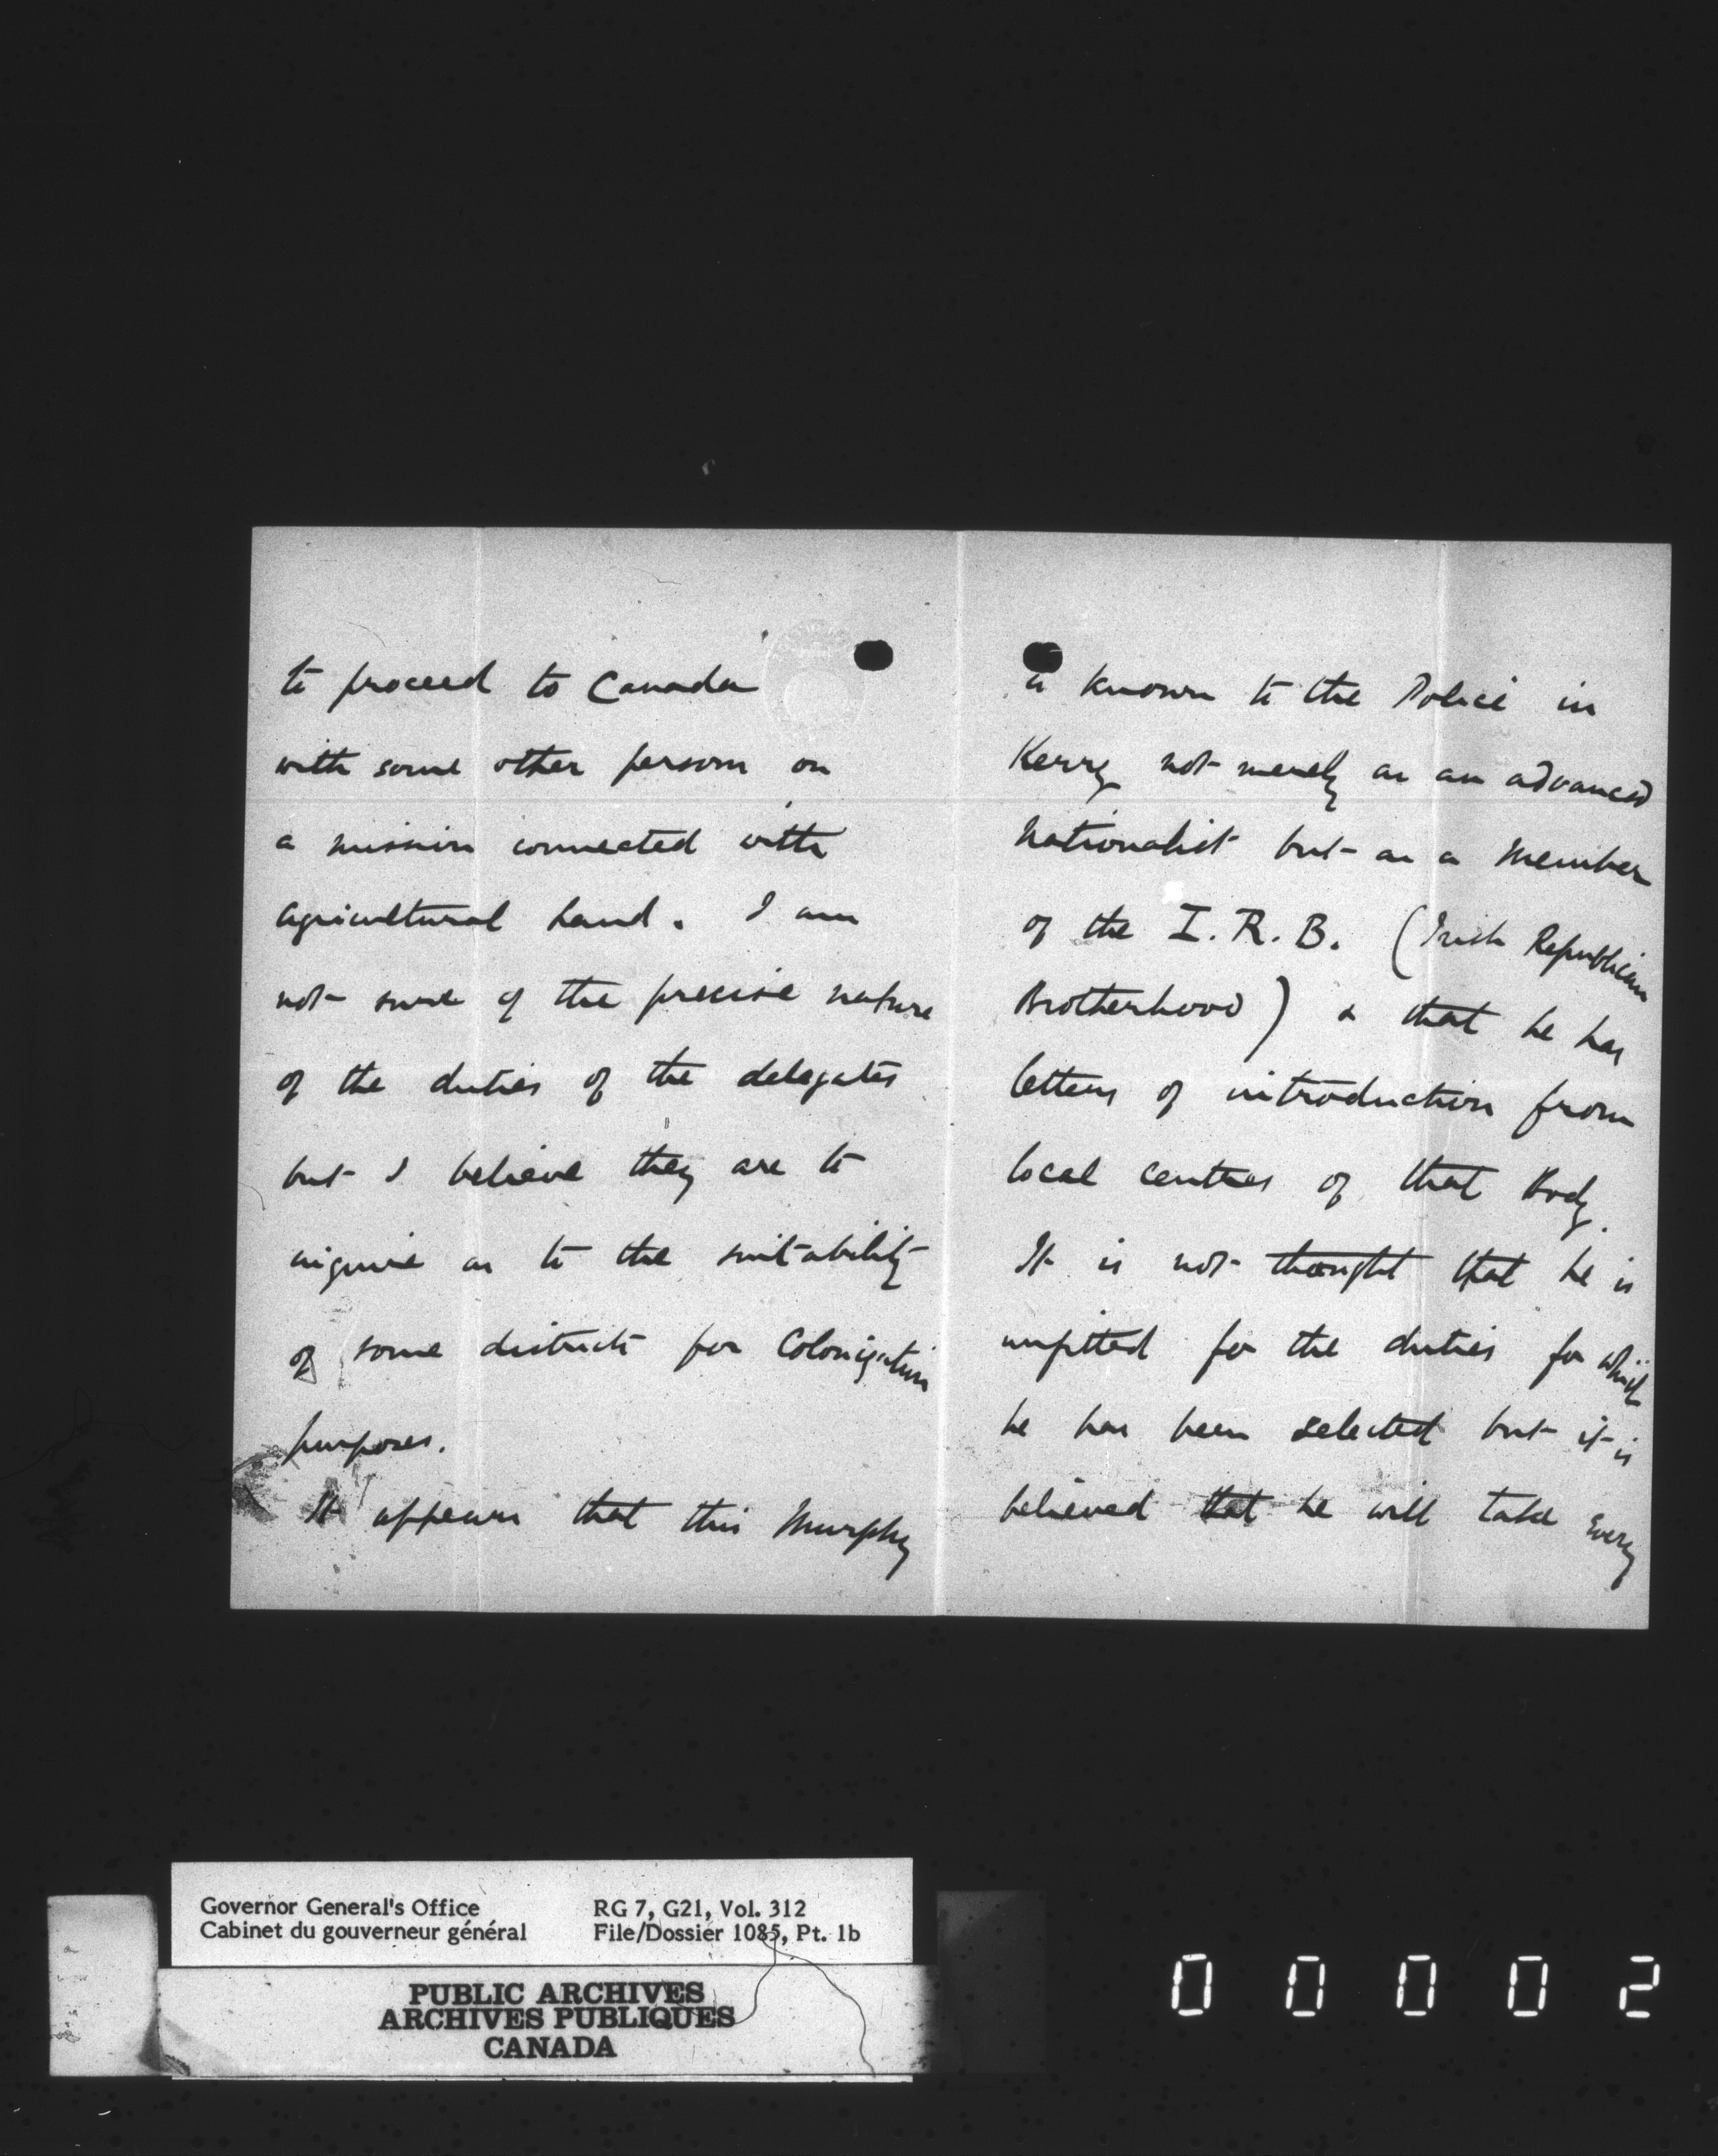 to proceed to Canada
with some other person on
a mission connected with
agricultural land. I am
not sure of the precise nature
of the duties of the delegates
but I believe they are to
inquire as to the suitability
of some districts for Colonization
purposes.
It appears that this Murphy
is known to the Police in
Kerry not merely as an advanced
Nationalist but as a member
of the I.R.B. (Irish Republican
Brotherhood) & that he has
letters of introduction from
local centres of that Body.
It is not thought that he is
unfitted for the duties for which
he has been selected but it is
believed that he will take every
Governor General's Office
Cabinet du gouverneur général
RG 7, G21, Vol. 312
File/Dossier 1085, Pt. 1b
PUBLIC ARCHIVES
ARCHIVES PUBLIQUES
CANADA
00002